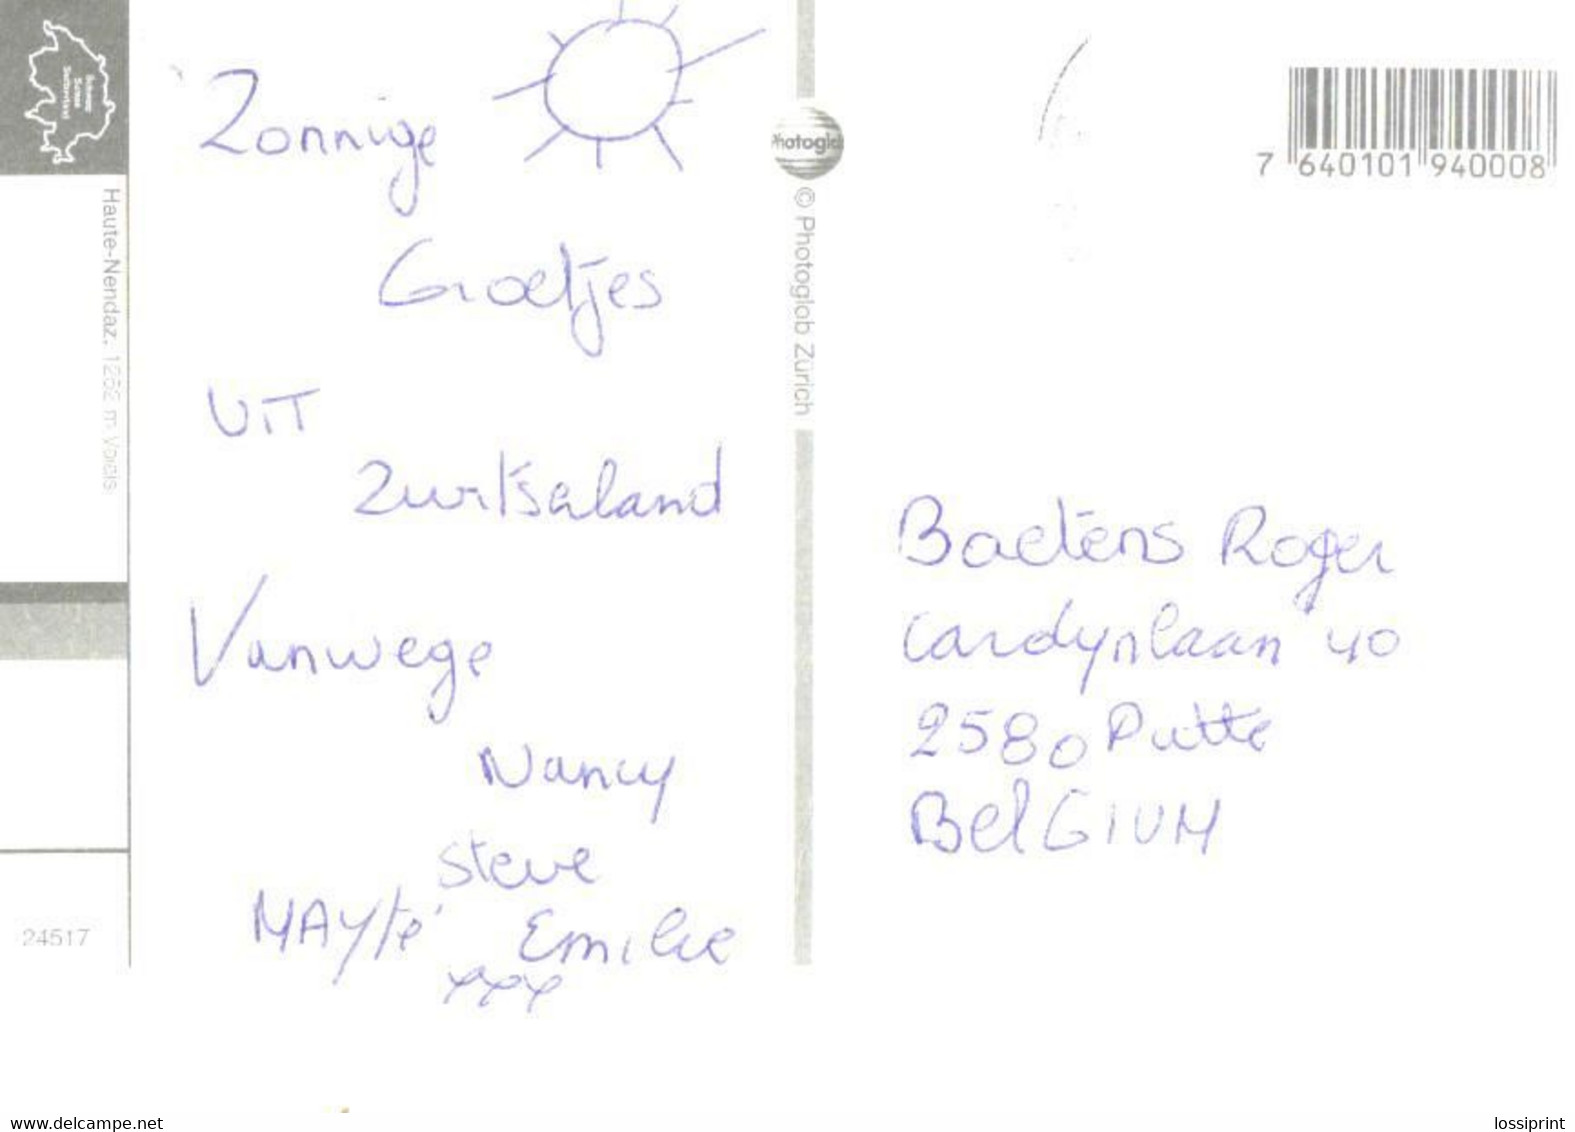 Schweiz
Suisse
Switzerland
Haute-Nendaz, 1252 m Valais
24517
Zonnige
Groetjes
UIT
Zwitserland
Vanwege
Nancy
Steve
MAYté Emilie
xxx
Photoglob
© Photoglob Zürich
7 640101 940008
Baetens Roger
Cardynlaan 40
2580 Putte
BelGIUM
www.delcampe.net
lossiprint